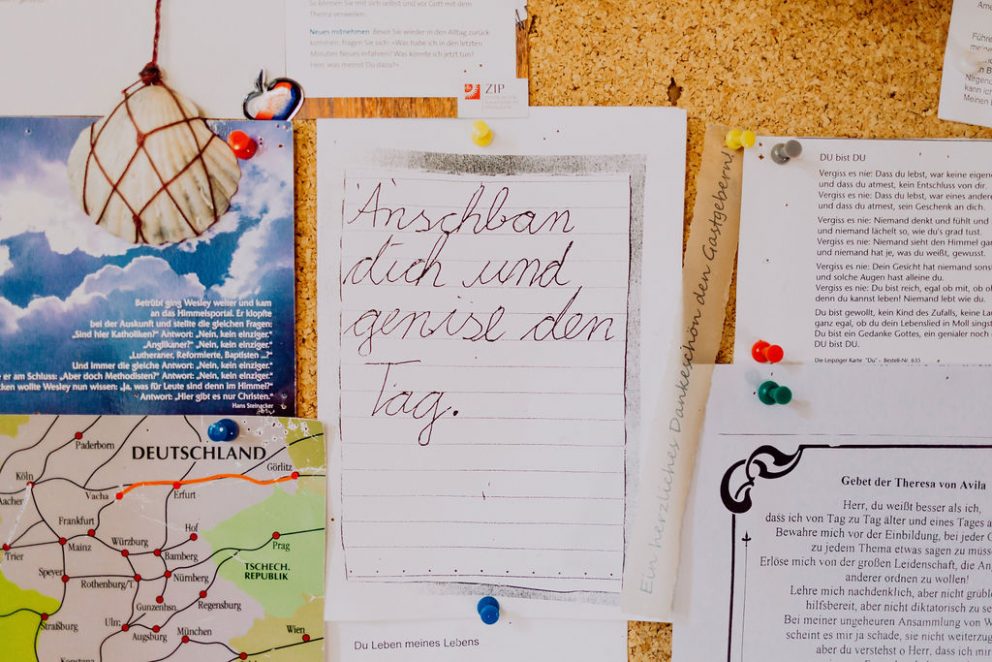 So können Sie mit sich selbst und vor Gott mit dem
Thema verweilen.
Neues mitnehmen
kommen, fragen Sie sich: «Was habe ich in den letzten
Minuten Neues erfahren? Was könnte ich jetzt tun?
Herr, was meinst Du dazu?»
ZIP
Betrübt ging Wesley weiter und kam
an das Himmelsportal. Er klopfte
bei der Auskunft und stellte die gleichen Fragen:
„Sind hier Katholiken?" Antwort: „Nein, kein einziger."
„Anglikaner?" „Nein, kein einziger."
„Lutheraner, Reformierte, Baptisten ...?"
Und immer die gleiche Antwort: „Nein, kein einziger."
e er am Schluss: „Aber doch Methodisten?" „Nein, kein einziger."
cken wollte Wesley nun wissen: „Ja, was für Leute sind denn im Himmel?"
Antwort: „Hier gibt es nur Christen."
Hans Steinacker
DEUTSCHLAND
Paderborn
Köln
Görlitz
Aacher
Vacha
Erfurt
Frankfurt
Hof
Mainz
Würzburg
Prag
Trier
Bamberg
TSCHECH.
REPUBLIK
Speyer
Rothenburg/T.
Nürnberg
Gunzenhsn.
Regensburg
Straßburg
Ulm
Augsburg
München
Wien
Konstanz
Anschban
dich und
genise den
Tag.
Ein herzliches Dankeschön den Gastgebern!
Du Leben meines Lebens
DU bist DU
Vergiss es nie: Dass du lebst, war keine eigene
und dass du atmest, kein Entschluss von dir.
Vergiss es nie: Dass du lebst, war eines andere
und dass du atmest, sein Geschenk an dich.
Vergiss es nie: Niemand denkt und fühlt und
und niemand lächelt so, wie du's grad tust.
Vergiss es nie: Niemand sieht den Himmel gan
und niemand hat je, was du weißt, gewusst.
Vergiss es nie: Dein Gesicht hat niemand sonst
und solche Augen hast alleine du.
Vergiss es nie: Du bist reich, egal ob mit, ob oh
denn du kannst leben! Niemand lebt wie du.
Du bist gewollt, kein Kind des Zufalls, keine Lau
ganz egal, ob du dein Lebenslied in Moll singst
Du bist ein Gedanke Gottes, ein genialer noch
DU bist DU.
Die Leipziger Karte "Du" - Bestell-Nr. 635
Gebet der Theresa von Avila
Herr, du weißt besser als ich,
dass ich von Tag zu Tag älter und eines Tages a
Bewahre mich vor der Einbildung, bei jeder G
zu jedem Thema etwas sagen zu müsse
Erlöse mich von der großen Leidenschaft, die An
anderer ordnen zu wollen!
Lehre mich nachdenklich, aber nicht grüble
hilfsbereit, aber nicht diktatorisch zu se
Bei meiner ungeheuren Ansammlung von W
scheint es mir ja schade, sie nicht weiterzug
aber du verstehst o Herr, dass ich mi
Führe
kann ich
Meinen